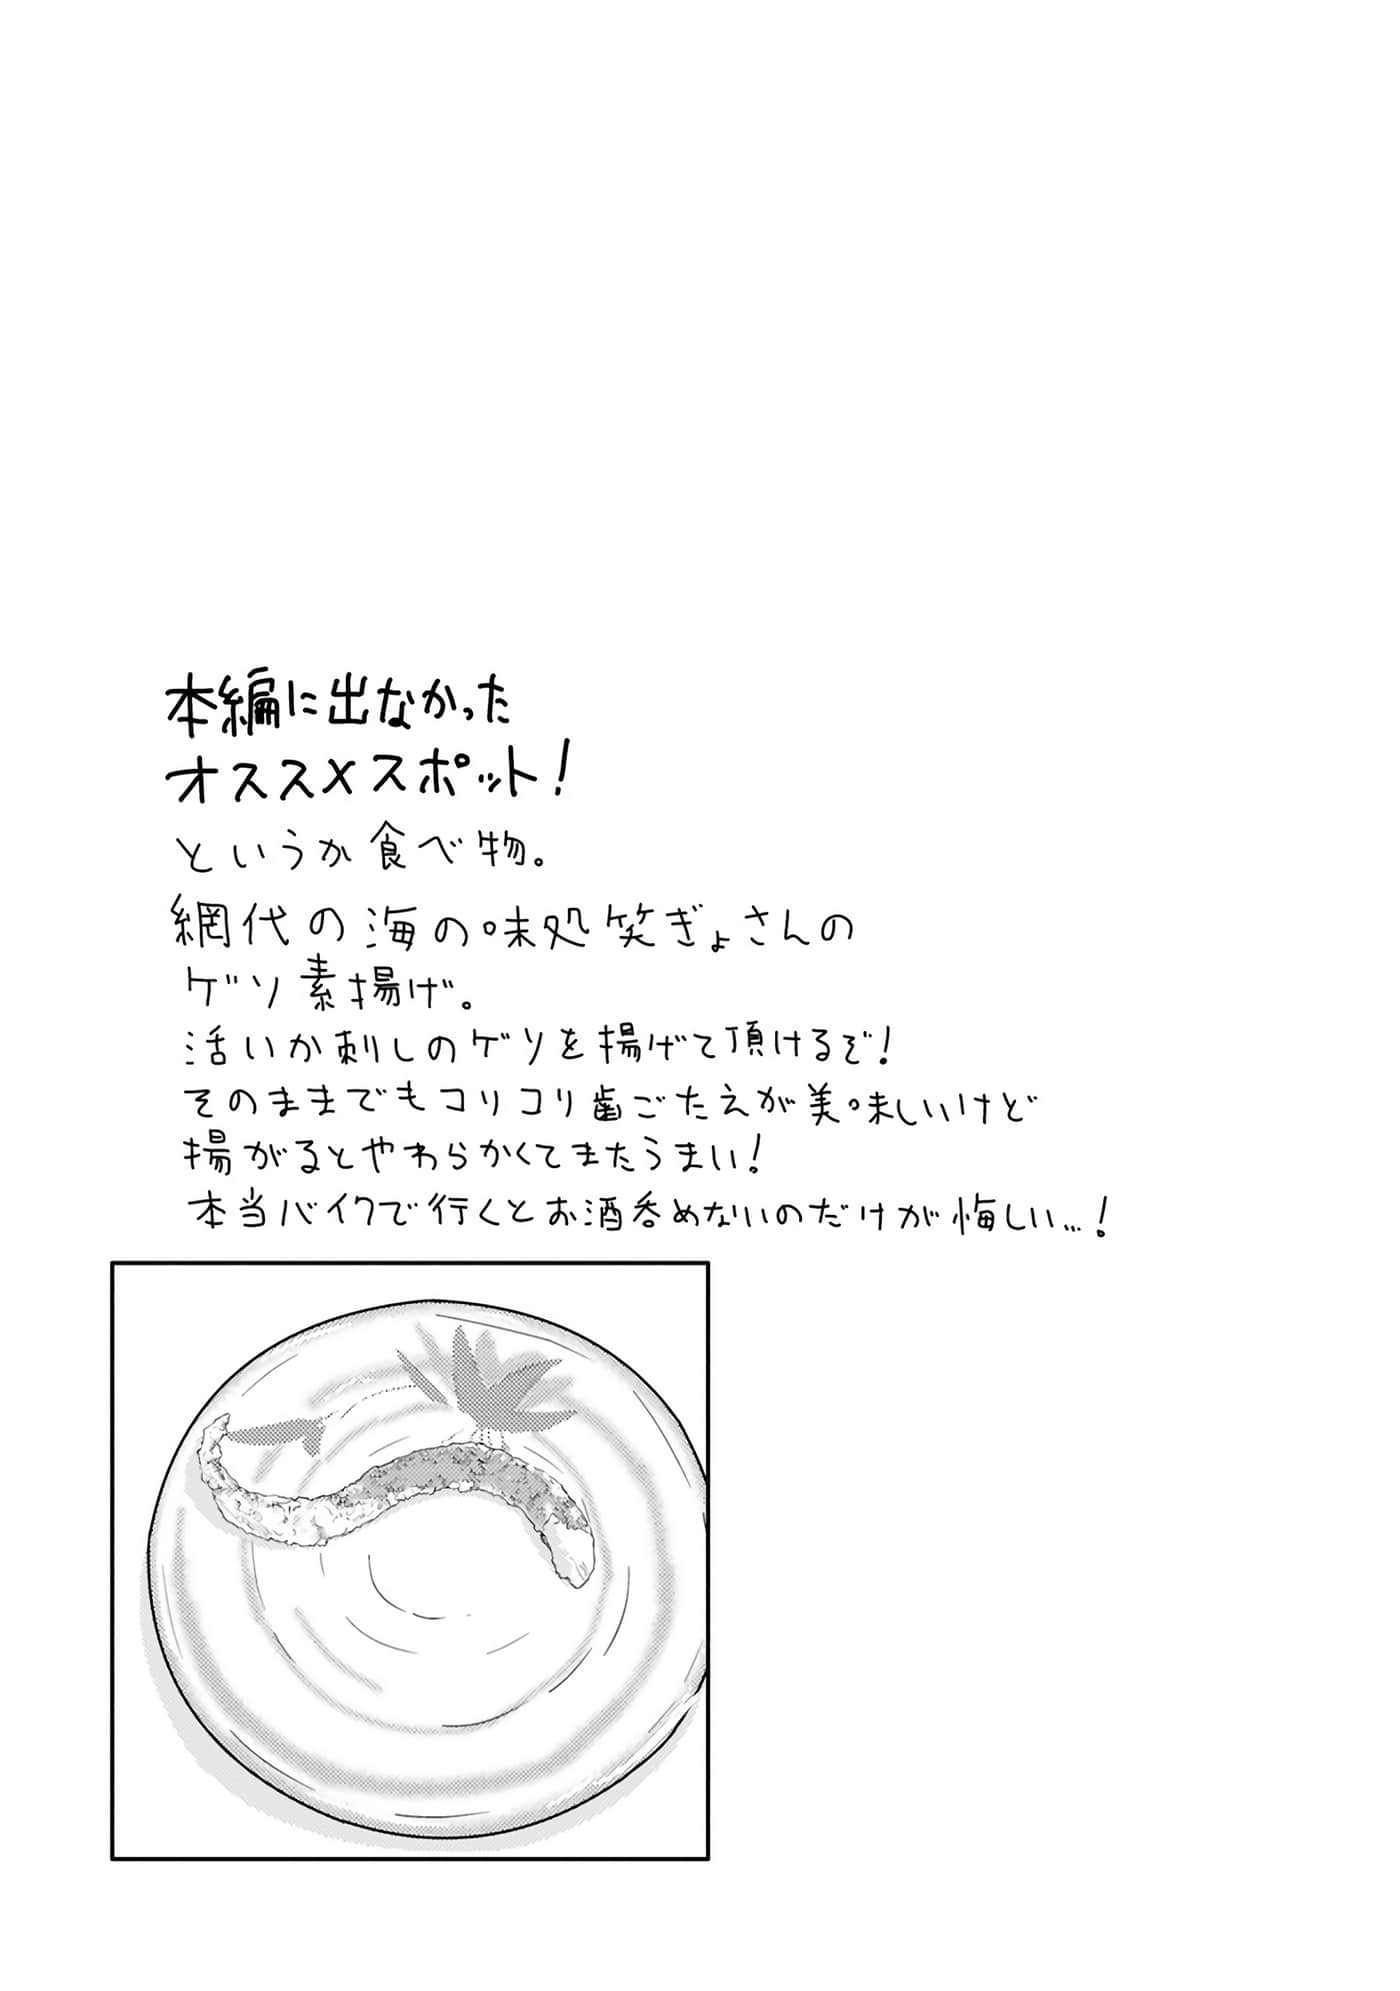 本編に出なかった
オススメスポット！
というか食べ物。
網代の海の味処笑ぎょさんの
ゲソ素揚げ。
活いか刺しのゲソを揚げて頂けるぞ！
そのままでもコリコリ歯ごたえが美味しいけど
揚がるとやわらかくてまたうまい！
本当バイクで行くとお酒呑めないのだけが悔しい…！